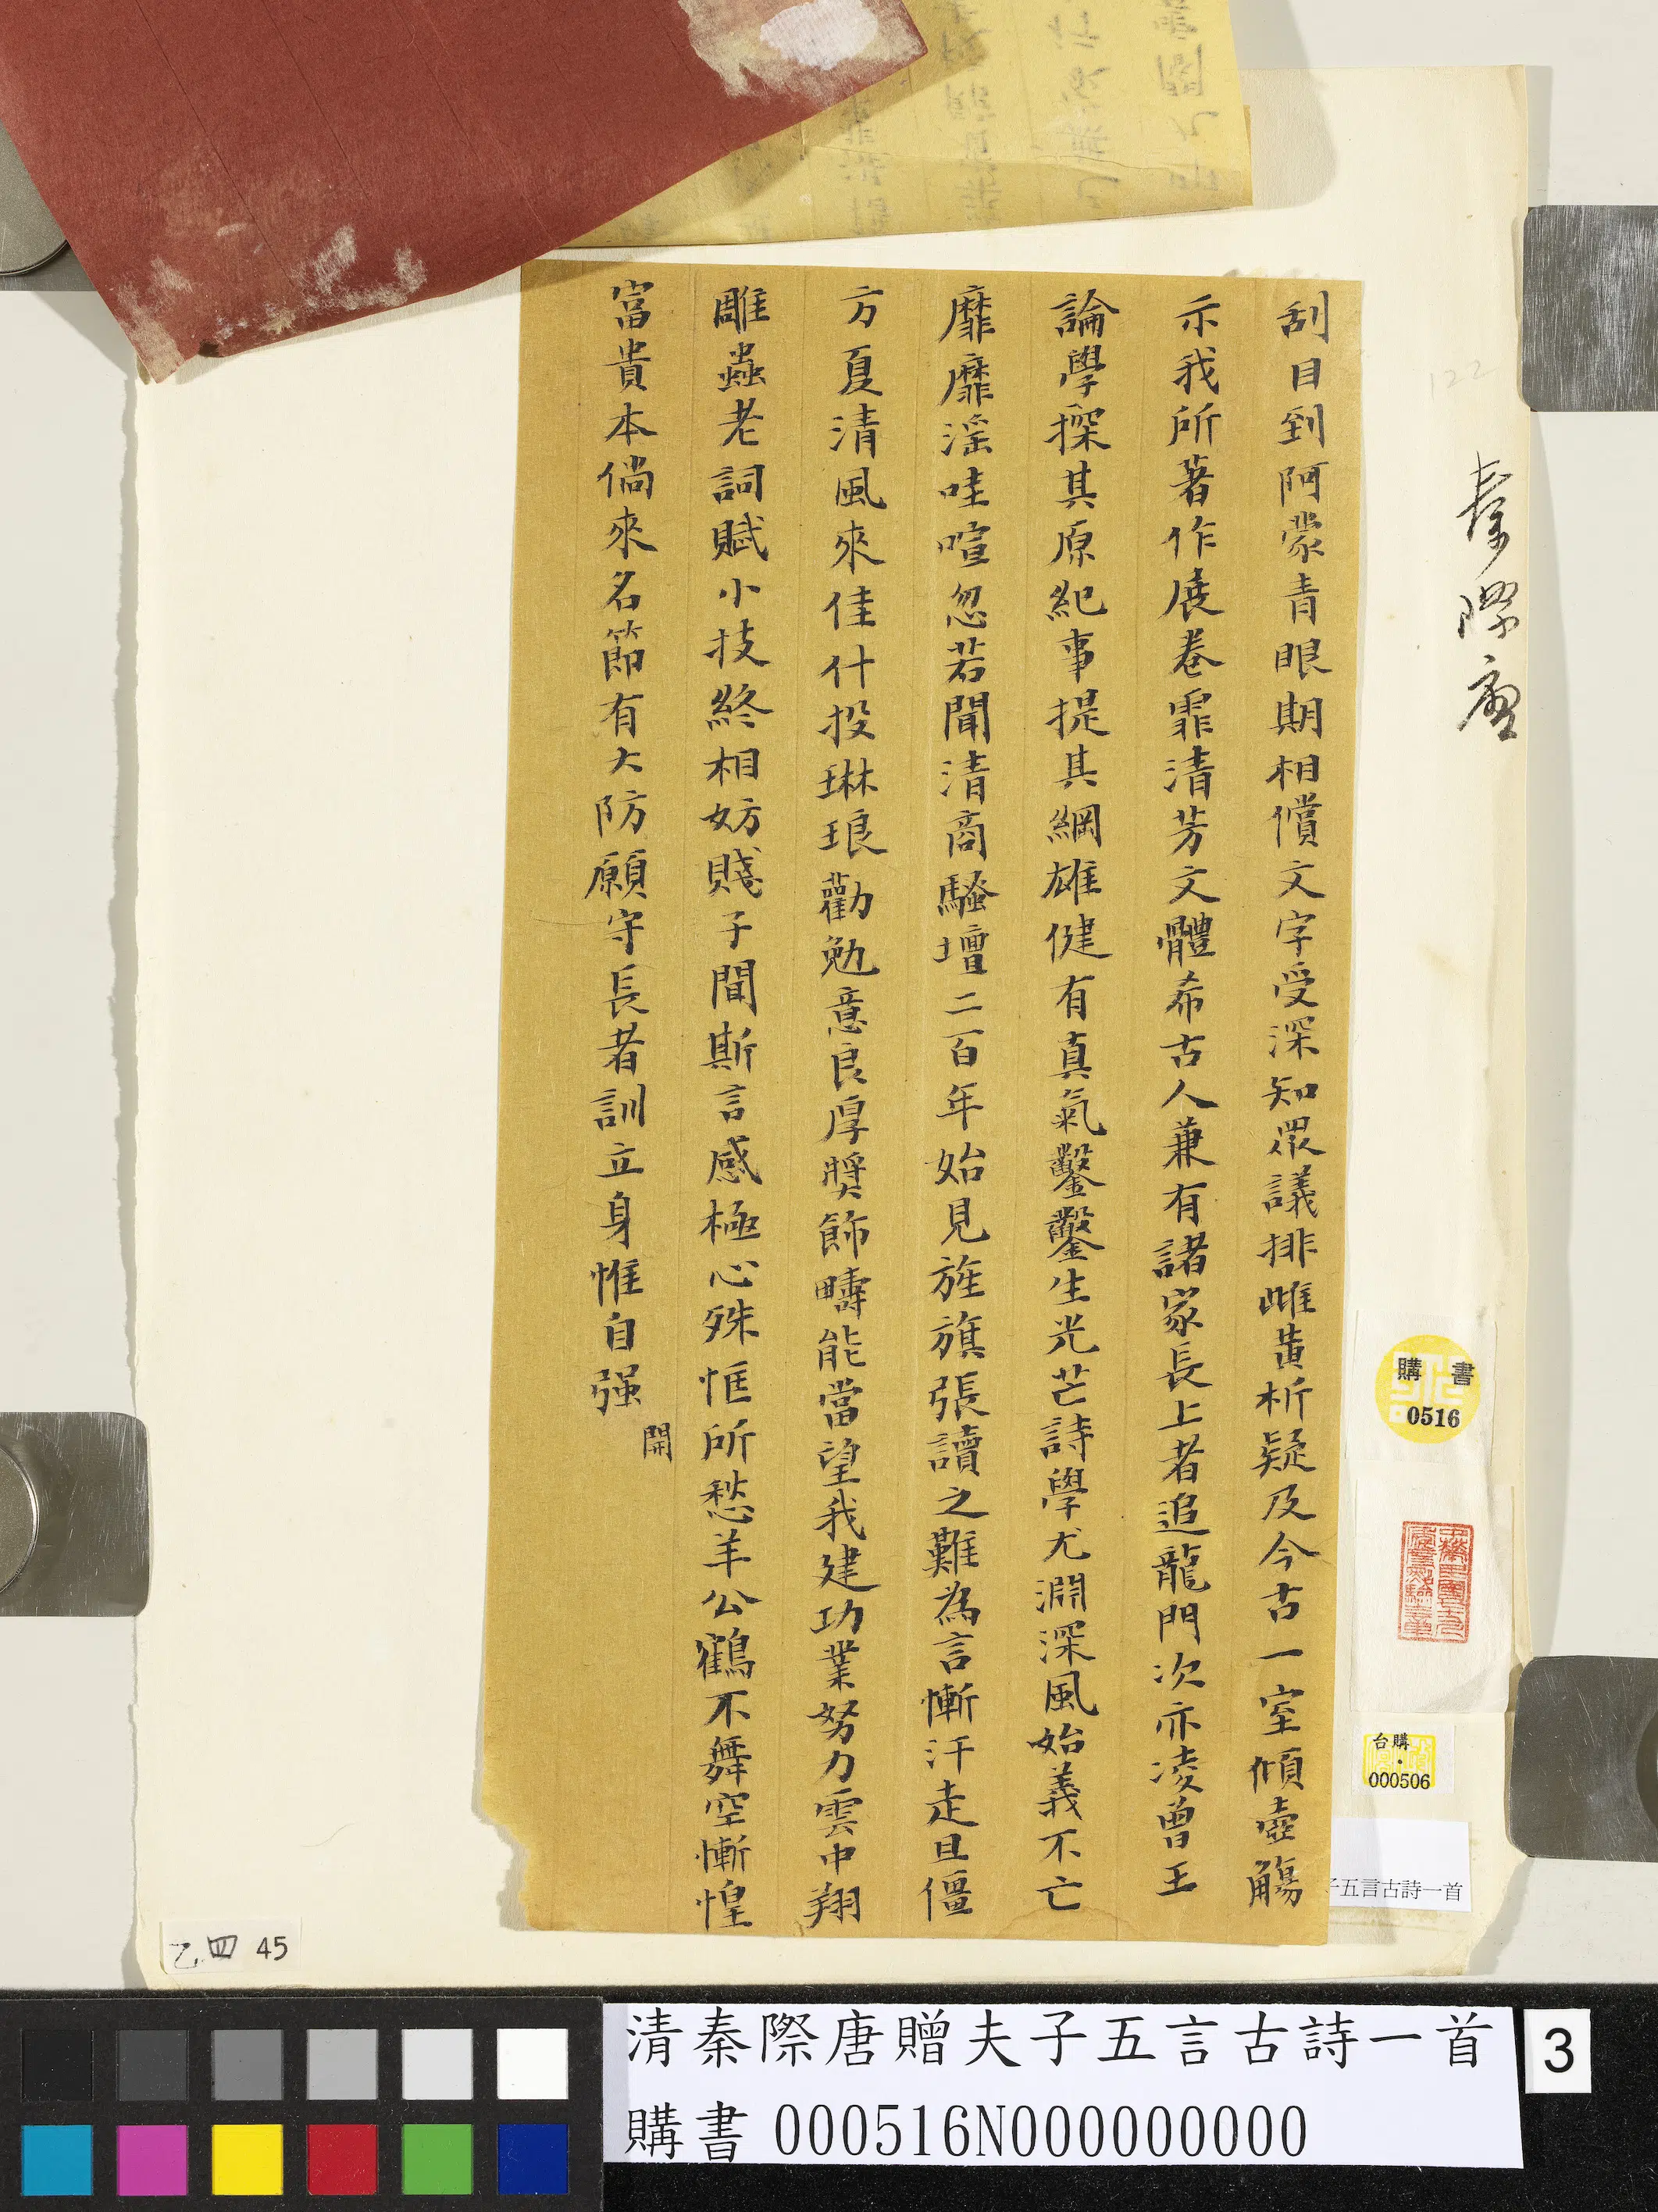 刮目到阿蒙青眼期相償文字受深知眾議排雌黃析疑及今古一室傾壺觴
示我所著作展卷霏清芳文體希古人兼有諸家長上者追龍門次亦凌曾王
論學探其原紀事提其綱雄健有真氣鑿鑿生光芒詩學尤淵深風始義不亡
靡靡淫哇喧忽若聞清商騷壇二百年始見旌旗張讀之難為言慚汗走且僵
方夏清風來佳什投琳琅勸勉意良厚獎飾疇能當望我建功業努力雲中翔
雕蟲老詞賦小技終相妨賤子聞斯言感極心殊恇所愁羊公鶴不舞空慚惶
富貴本倘來名節有大防願守長者訓立身惟自强
開
秦際唐
購書
0516
台購
000506
子五言古詩一首
122
乙四 45
清秦際唐贈夫子五言古詩一首
購書 000516N000000000
3